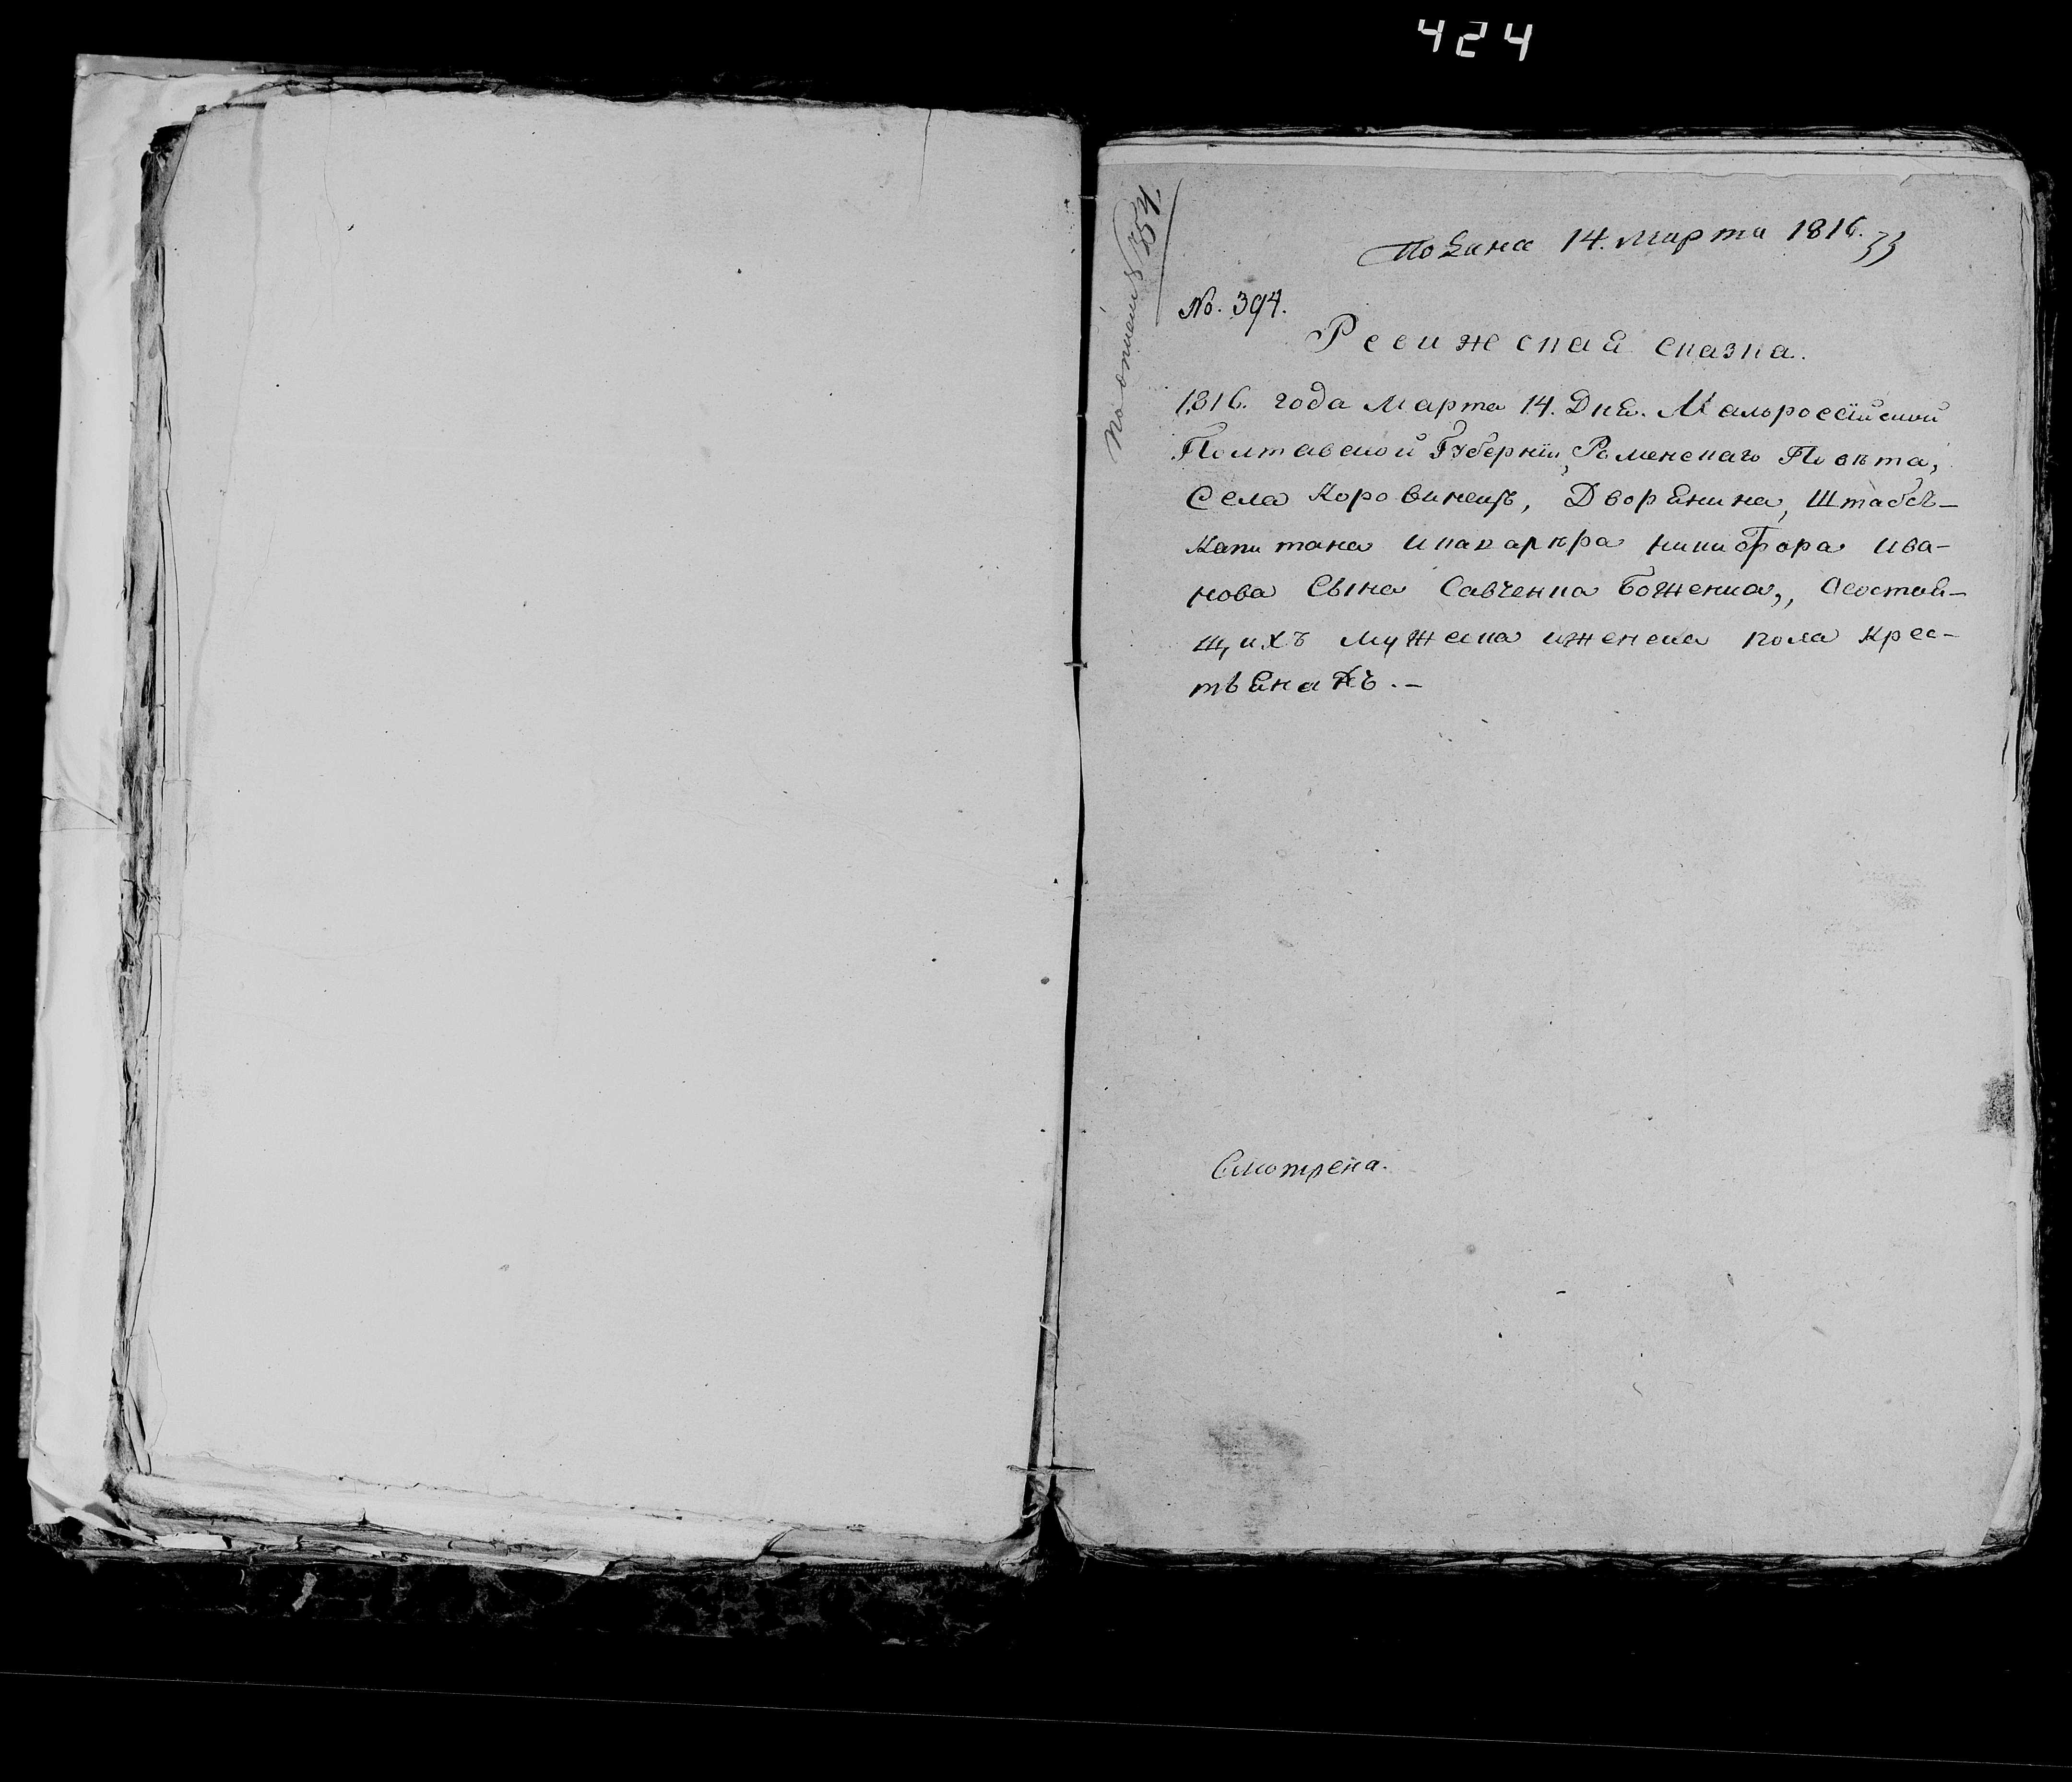 424
По описи № 354.
Подана 14. Марта 1816.
No. 394.
Ревижская сказка.
1816. года Марта 14. Дня. Малороссійской
Полтавской Губерніи, Роменскаго Повѣта,
Села Коровинецъ, Дворянина, Штабсъ-
Капитана икавалѣра никифора ива-
нова Сына Савченка Боженка,, Осостои-
щихъ мужеска иженска пола крес-
тьянахъ.-
Смотрена.